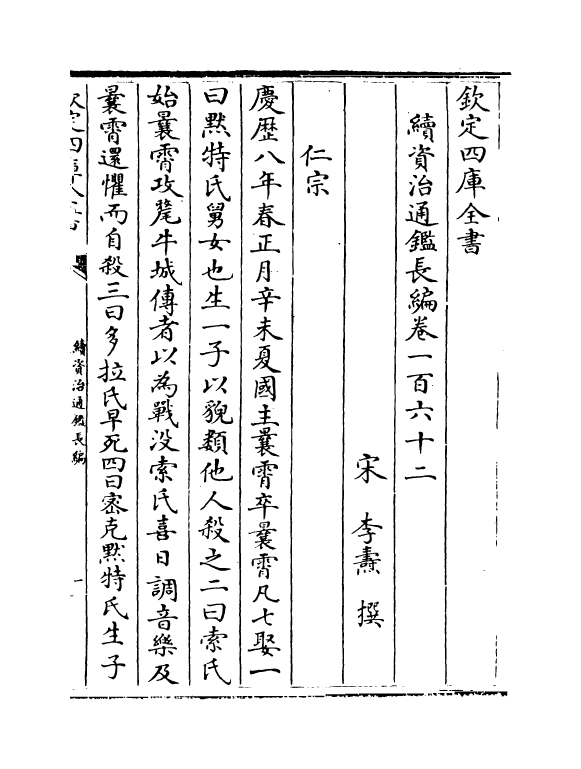 欽定四庫全書
續資治通鑑長編卷一百六十二
宋　李燾　撰
仁宗
慶歴八年春正月辛未夏國主曩霄卒曩霄凡七娶一
曰黙特氏舅女也生一子以貌類他人殺之二曰索氏
始曩霄攻氂牛城傳者以為戰没索氏喜日調音樂及
曩霄還懼而自殺三曰多拉氏早死四曰宻克黙特氏生子
續資治通鑑長編
一